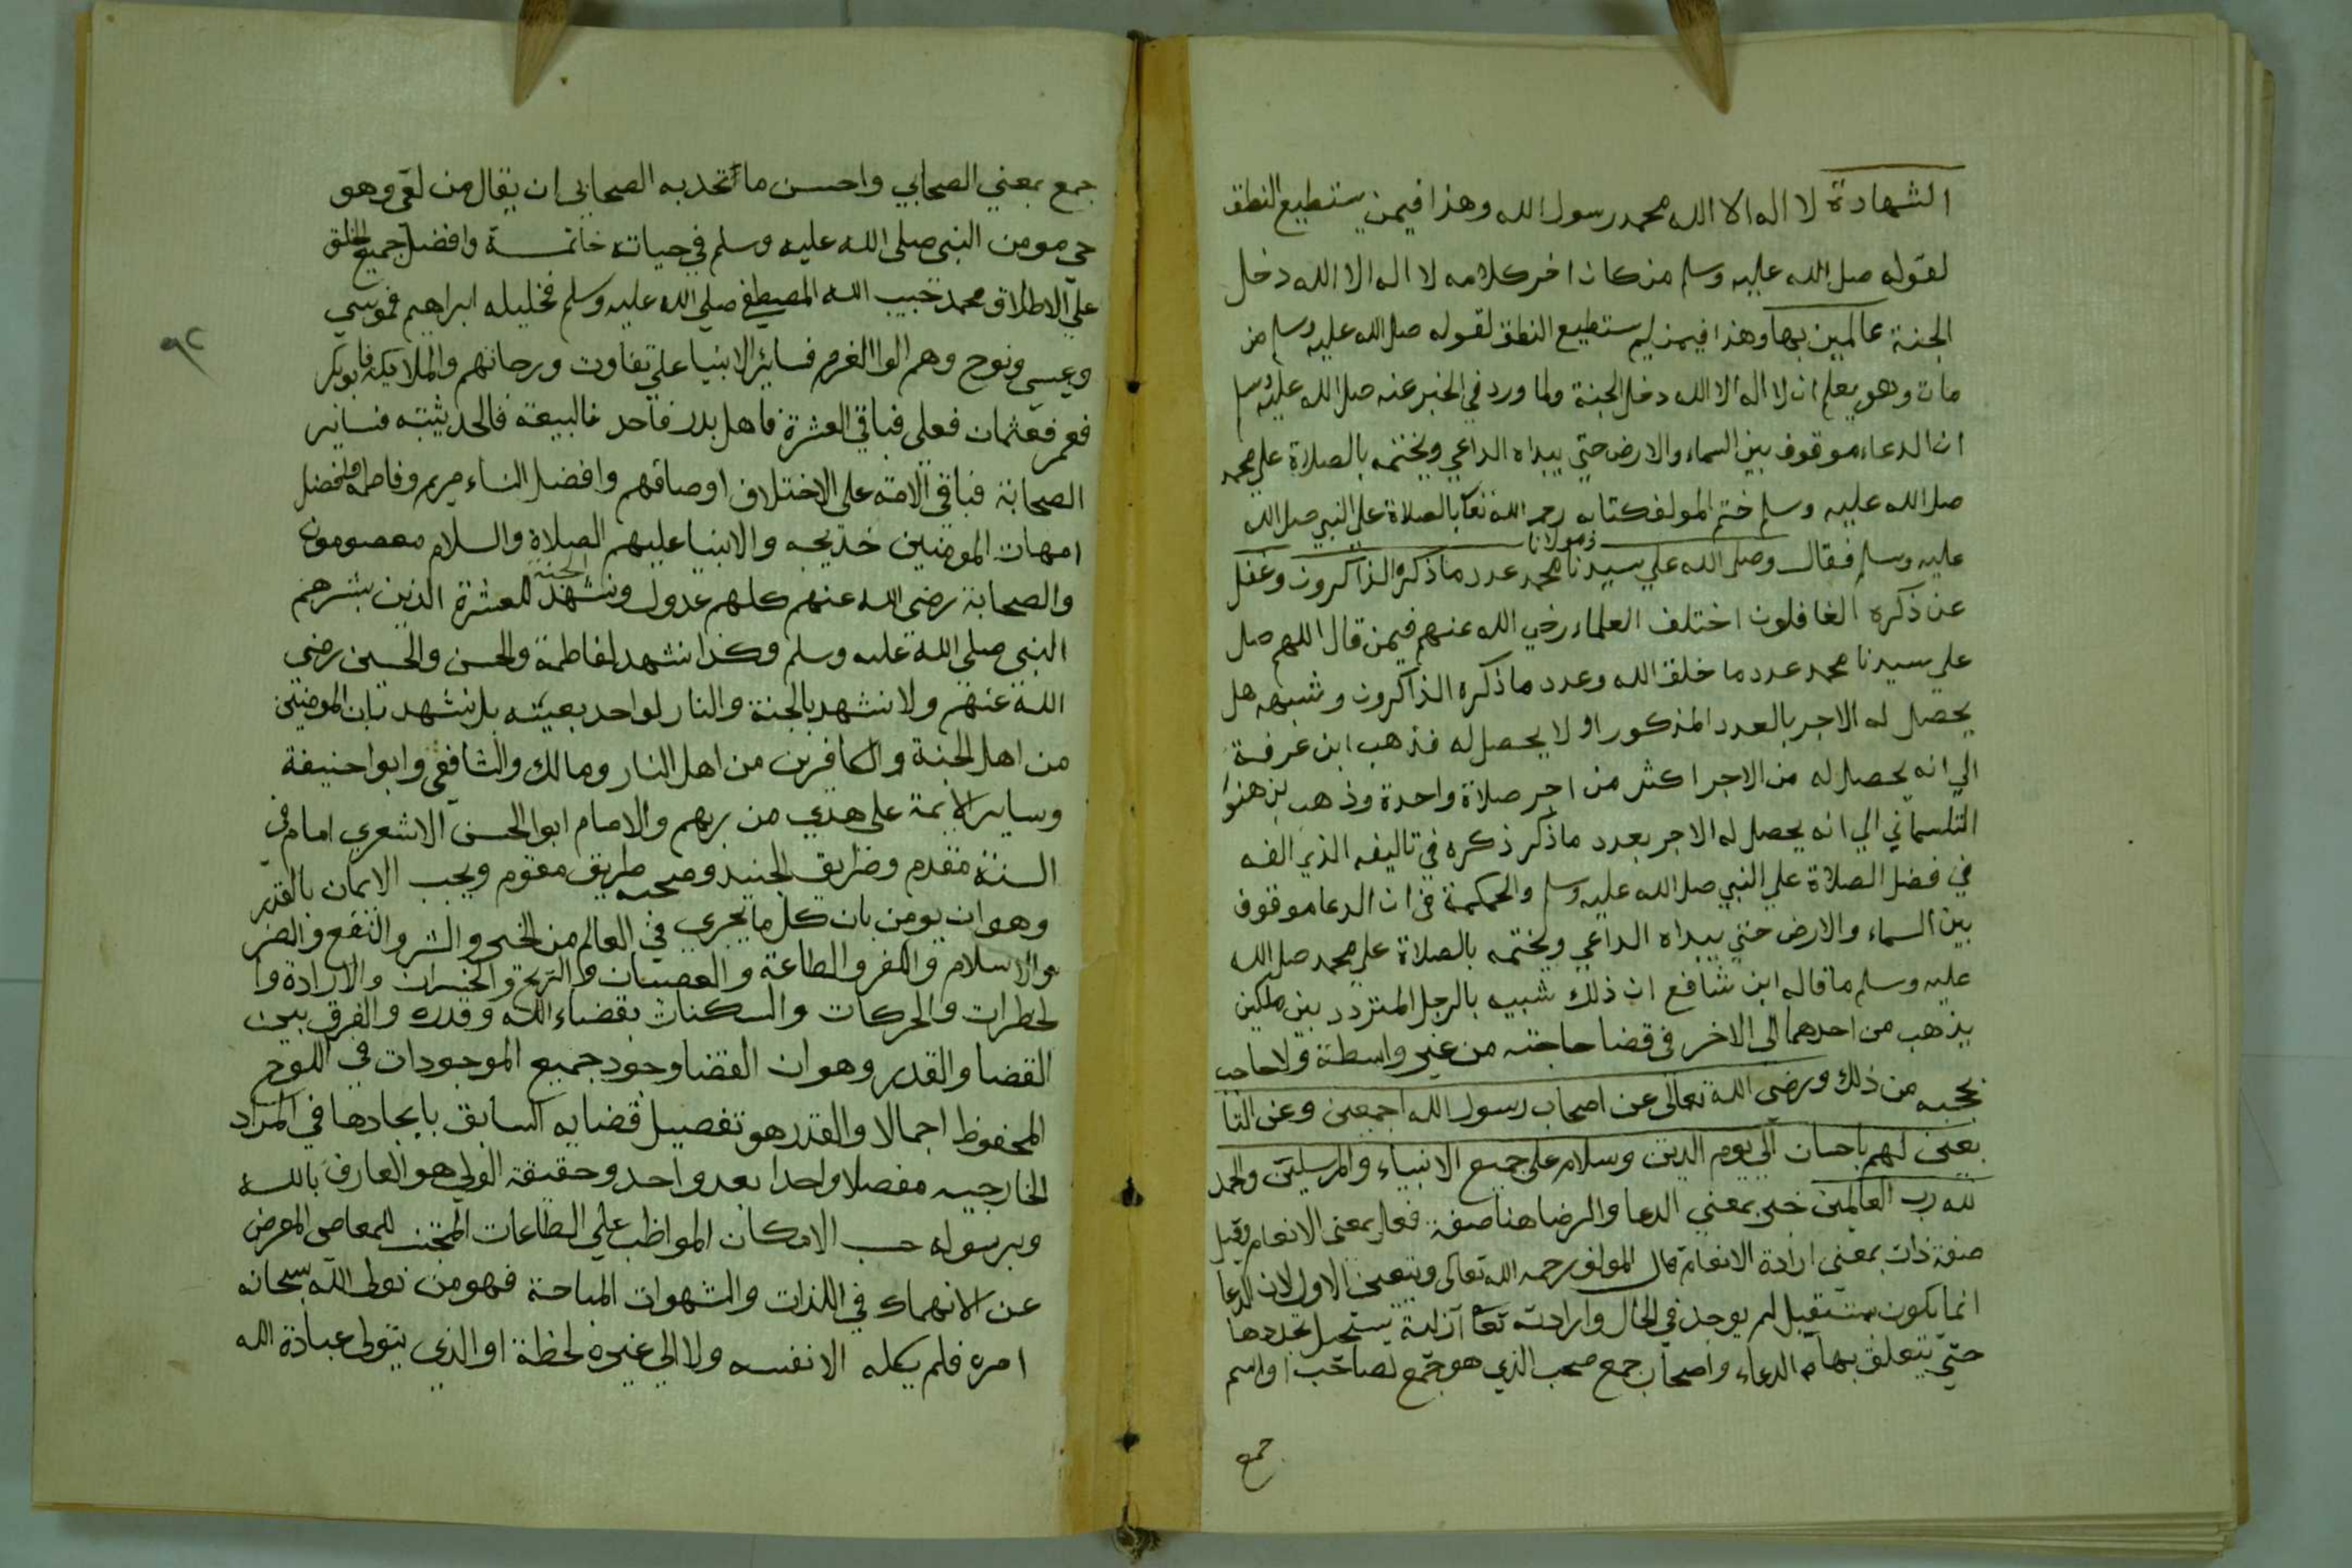 الشهادة لا اله الا الله محمد رسول الله وهذا فيمن يستطيع النطق
لقوله صلى الله عليه وسلم من كان اخر كلامه لا اله الا الله دخل
الجنة عالمين بها وهذا فيمن لم يستطيع النطق لقوله صلى الله عليه وسلم من
مات وهو يعلم ان لا اله الا الله دخل الجنة ولما ورد في الخبر عنه صلى الله عليه وسلم
ان الدعاء موقوف بين السماء والارض حتي يبداه الداعي ويختمه بالصلاة علي محمد
صلى الله عليه وسلم ختم المولف كتابه رحمه الله تعا بالصلاة علي النبي صلى الله
عليه وسلم فقال وصلى الله علي سيدنا ومولانا محمد عدد ما ذكره الذاكرون وغفل
عن ذكره الغافلون اختلف العلماء رضي الله عنهم فيمن قال اللهم صل
علي سيدنا محمد عدد ما خلق الله وعدد ما ذكره الذاكرون وشبهه هل
يحصل له الاجر بالعدد المذكور او لا يحصل له فذهب ابن عرفة
الي انه يحصل له من الاجر اكثر من اجر صلاة واحدة وذهب
التلمساني الي انه يحصل له الاجر بعدد ما ذكر ذكره في تاليفه الذي الفه
في فضل الصلاة علي النبي صلى الله عليه وسلم والحكمة في ان الدعا موقوف
بين السماء والارض حتي يبداه الداعي ويختمه بالصلاة علي محمد صلى الله
عليه وسلم ما قاله ابن شافع ان ذلك شبيه بالرجل المتردد بين ملكين
يذهب من احدهما الى الاخر في قضا حاجته من غير واسطة ولا حاجب
يحجبه من ذلك ورضى الله تعالى عن اصحاب رسول الله اجمعين وعن التا
بعين لهم باحسان الي يوم الدين وسلام على جميع الانبياء والمرسلين والحمد
لله رب العالمين خبر بمعني الدعا والرضا هنا صفة فعل بمعنى الانعام وقيل
صفة ذات بمعنى ارادة الانعام قال المولف رحمه الله تعالى ويتعين الاول لان الدعا
انما يكون بمستقبل لم يوجد في الحال وارادته تعا ازلية يستحيل تجددها
حتي تتعلق بها الدعاء واصحاب جمع صحب الذي هو جمع لصاحب او اسم
جمع
٩٢
جمع بمعني الصحابي واحسن ما تحد به الصحابي ان يقال من لقى وهو
حي مومن النبي صلى الله عليه وسلم في حياته خاتمة وافضل جميع الخلق
علي الاطلاق محمد حبيب الله المصطفي صلي الله عليه وسلم فخليله ابراهيم فموسي
وعيسي ونوح وهم الوا العزم فسائر الانبيا علي تفاوت ورجاتهم والملايكة فابوبكر
فعمر فعثمان فعلى فباقي العشرة فاهل بدر فاحد فالبيعة فالحديثيته فساير
الصحابة فباقي الامة على الاختلاف اوصافهم وافضل النساء مريم وفاطمة وافضل
امهات المومنين خديجه والانبيا عليهم الصلاة والسلام معصومون
والصحابة رضى الله عنهم كلهم عدول ونشهد الجنة للعشرة الذين بشرهم
النبي صلى الله عليه وسلم وكذا نشهد لفاطمة والحسن والحسين رضي
الله عنهم ولا نشهد بالجنة والنار لواحد بعينه بل نشهد بان المومنين
من اهل الجنة والكافرين من اهل النار ومالك والشافعي وابوا حنيفة
وساير الايمة على هدي من ربهم والامام ابوا الحسن الاشعري امام في
السنة مقدم وطريق الجنيد وصحبه طريق مقوم ويجب الايمان بالقدر
وهو ان يومن بان كل ما يجري في العالم من الخير والشر والنفع والضر
والاسلام والكفر والطاعة والعصيان والربح والخسران والارادة وا
لخطرات والحركات والسكنات بقضاء الله وقدره والفرق بين
القضا والقدر وهو ان القضا وجود جميع الموجودات في اللوح
المحفوظ اجمالا والقدر هو تفصيل قضايه السابق بايجادها في المراد
الخارجيه مفصلا واحدا بعد واحد وحقيقة الولي هو العارف بالله
وبرسوله حسب الامكان المواظب علي الطاعات المجتنب للمعاصي المعرض
عن الانهماك في اللذات والشهوات المباحة فهو من تولى الله سبحانه
امره فلم يكله الا نفسه ولا الي غيره لحظة او الذي يتولى عبادة الله